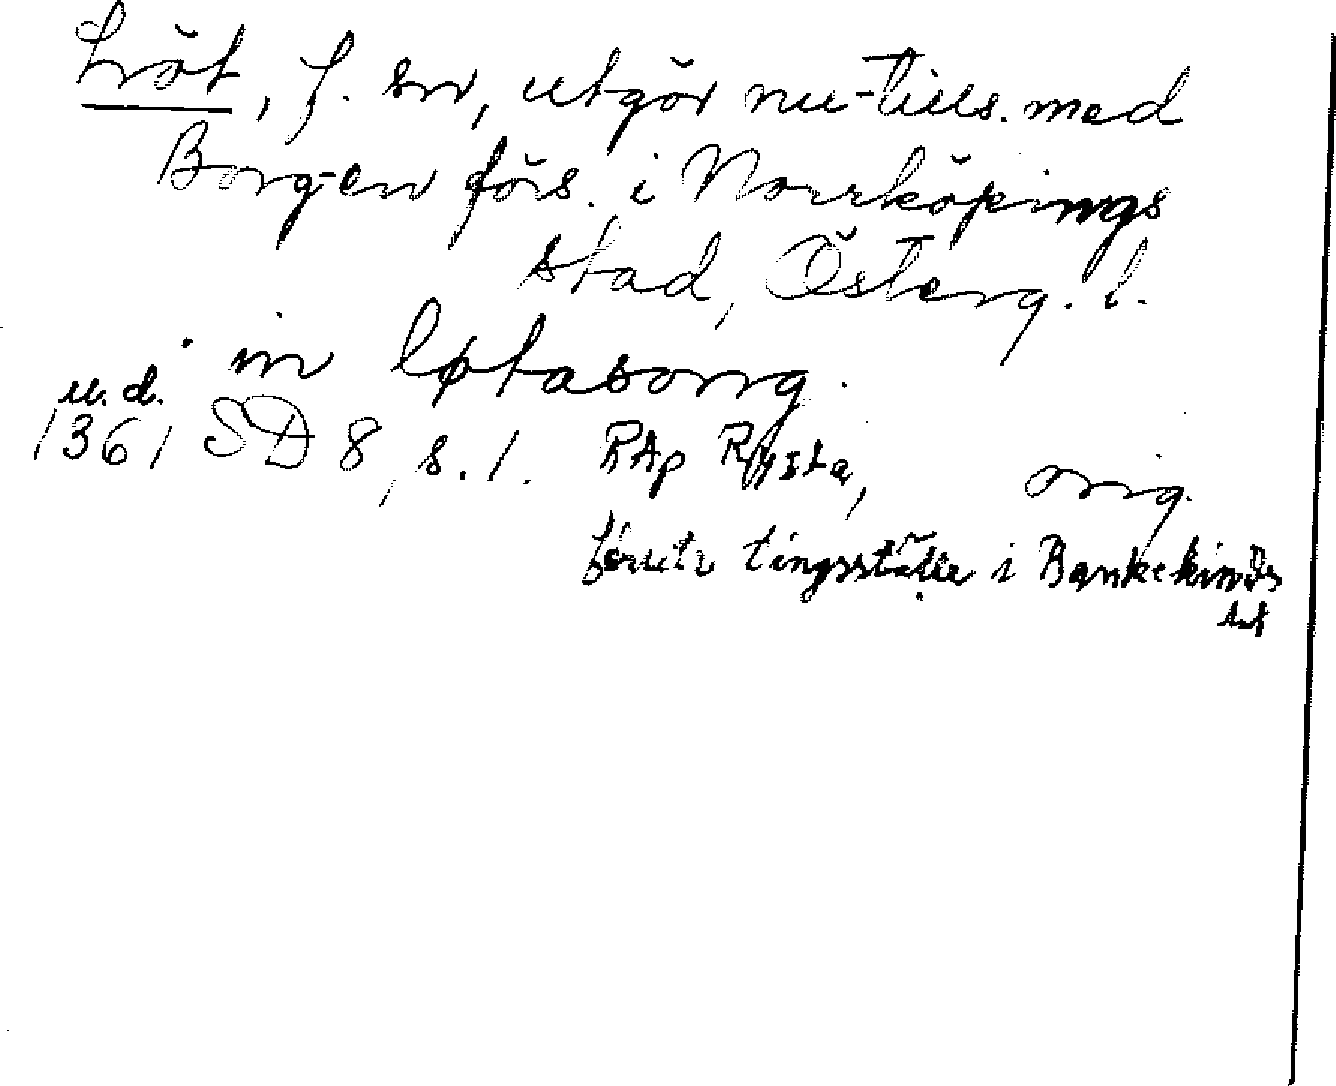 Löt, f. sn, utgör nu tills. med
Borg en förs. i Norrköpings
stad, Österg. l.
in løtaborg.
u. d.
1361 SD 8, s. 1. RAp Rysta, orig.
tingsställe i Bankekinds
hd